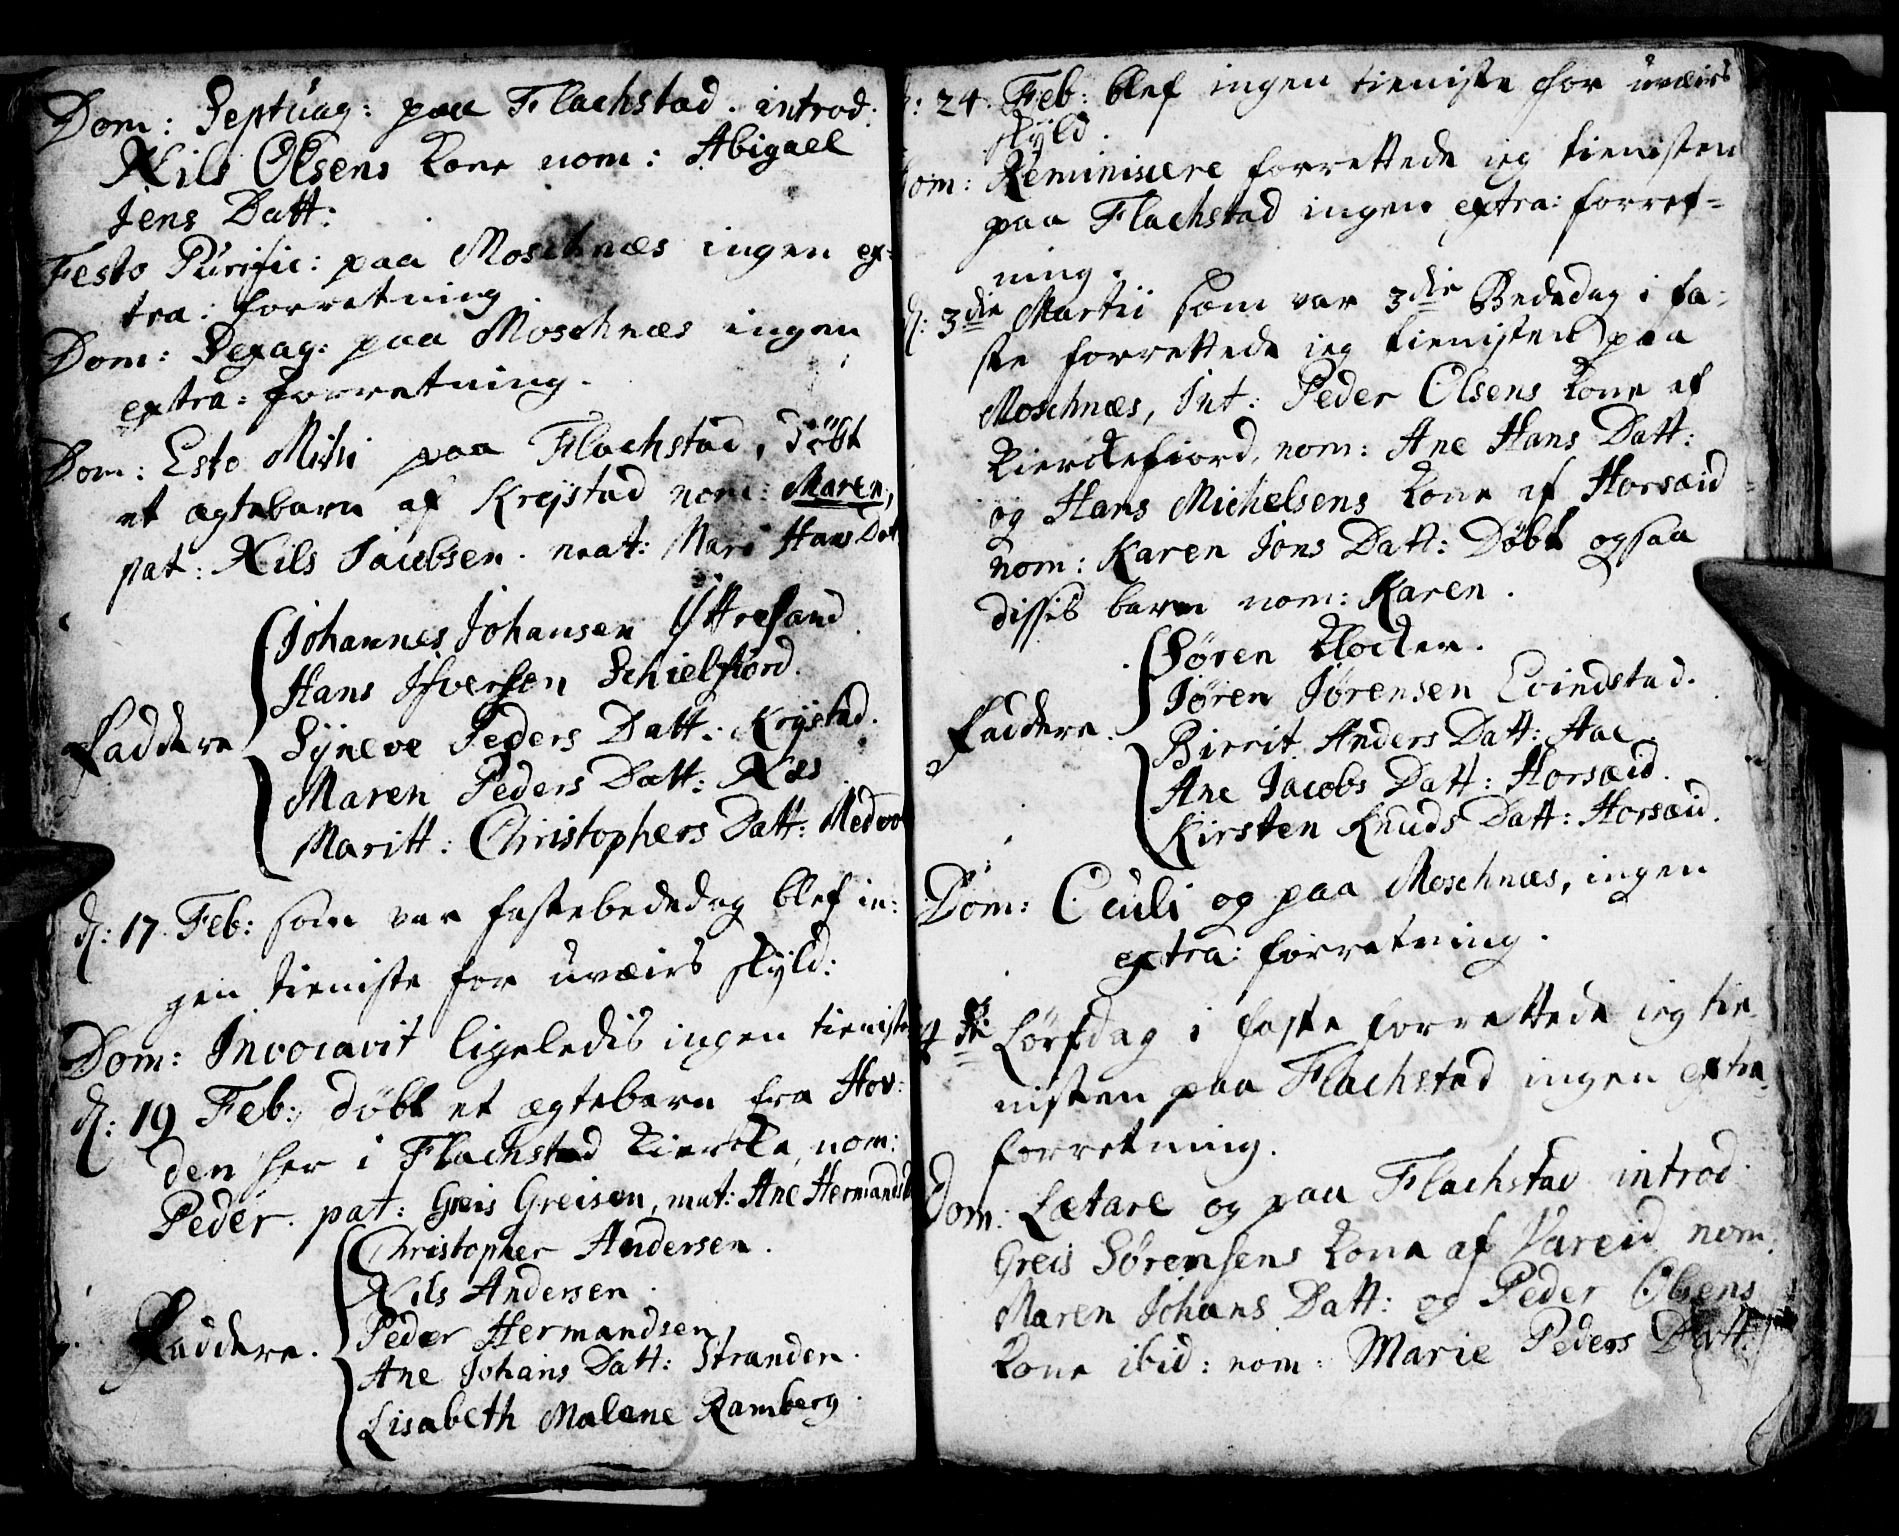 Dom: Septuag: paa Flachstad. introd:
Nils Olsens kone nom: Abigael
Jens Datt:
Festo Purific: paa Moschnæs ingen ex-
tra: forretning.
Dom: Sexag: paa Moschnæs ingen
extra: forretning.
Dom: Esto Mihi paa Flachstad, döbt
et ægtebarn af Krystad nom: Maren,
pat: Nils Jacobsen. mat: Mari Hans Dat
Johannes Johansen Yttresand.
Hans Ifversen Schielfiord.
Faddere Syneve Peders Datt: Krystad.
Maren Peders Datt: Næs
Maritt: Christophers Datt: Medvo
d: 17. Feb: som var fastebededag blef in-
gen tieniste for uveirs skyld:
Dom: Invocavit ligeledis ingen tieniste
d: 19 Feb: döbt et ægtebarn fra Hov-
den her i Flachstad kierke, nom:
Peder. pat: Greis Greisen, mat: Ane Hermands
Christopher Andersen.
Nils Andersen.
Faddere. Peder Hermandsen,
Ane Johans Datt: Stranden.
Lisabeth Malene Ramberg.
d: 24. Feb: blef ingen tieniste for uveirs
skyld.
Dom: Reminiscere forrettede jeg tienisten
paa Flachstad ingen extra: forret-
ning.
d: 3die Martii som var 3die Bededag i fa-
ste forrettede jeg tienisten paa
Moschnæs, Int: Peder Olsens kone af
Kierckefiord, nom: Ane Hans Datt:
og Hans Michelsens kone af Horsæid
nom: Karen Jons Datt: Döbt ogsaa
dissis barn nom: Karen.
Sören Klocker.
Jören Jörensen Evindstad.
Faddere. Birrit Anders Datt: Aae.
Ane Jacobs Datt: Horsæid.
Kirsten Knuds Datt: Horsæid.
Dom: Oculi og paa Moschnæs, ingen
extra: forretning.
4de Lörsdag i faste forrettede jeg tie-
nisten paa Flachstad ingen extra-
forretning.
Dom: Lætare og paa Flachstad introd.
Greis Sörensens kone af Vareid nom:
Maren Johans Datt: og Peder Olsens
kone ibid: nom: Marie Peders Datt: